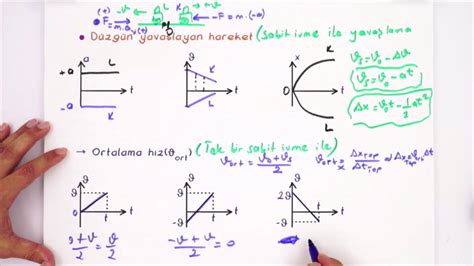 -v L K +v
(+) F = m.a -F = m.(-a)
v(+)
• Düzgün yavaşlayan hareket (sabit ivme ile yavaşlama
a ϑ x
+a L K K
-a K L L
t t t
0
ϑs = ϑ0 - Δϑ
ϑs = ϑ0 - at
Δx = ϑ0t - 1/2 at²
→ Ortalama hız (ϑort) (Tek bir sabit ivme ile)
ϑort = ϑ0 + ϑs / 2
ϑort = ΔxTop / ΔtTop
x
Δx = ϑort Δt
TOP
ϑ ϑ ϑ
ϑ ϑ 2ϑ
0 t t t
-ϑ -ϑ
ϑ + ϑ / 2 = ϑ / 2
-v + v / 2 = 0